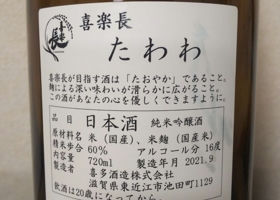 喜楽長
たわわ
喜楽長が目指す酒は「たおやか」であること。
麹による深い味わいが滑らかに広がること。
この酒があなたの心を優しくできますように。
品目 日本酒 純米吟醸酒
原材料名 米(国産)、米麹(国産米)
精米歩合 60% アルコール分 16度
内容量 720ml 製造年月 2021.9
喜多酒造株式会社
滋賀県東近江市池田町1129
飲酒は20歳になってから。